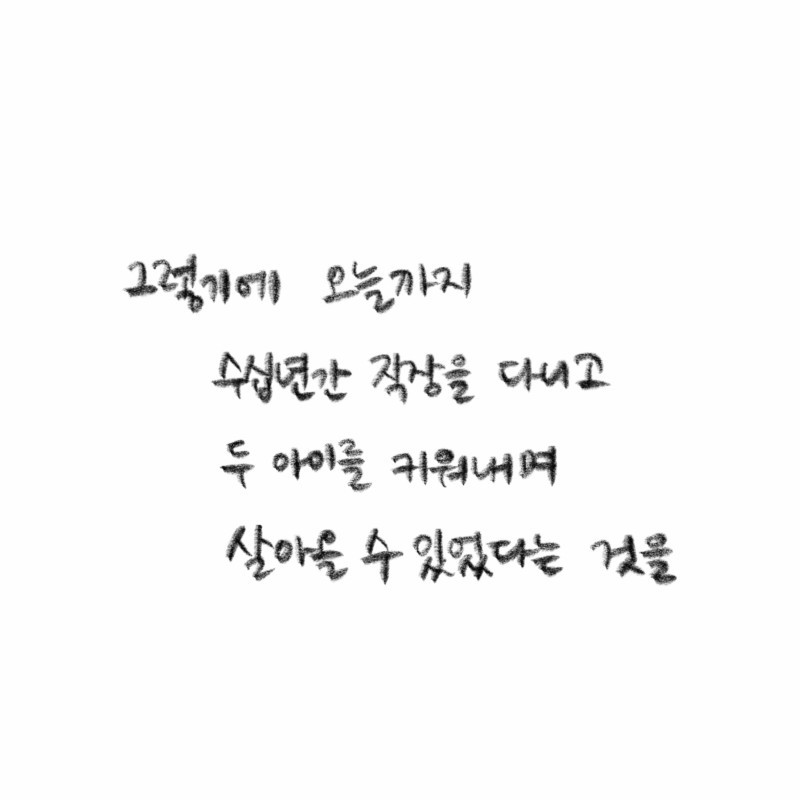 그렇기에 오늘까지
수십년간 직장을 다니고
두 아이를 키워내며
살아올 수 있었다는 것을